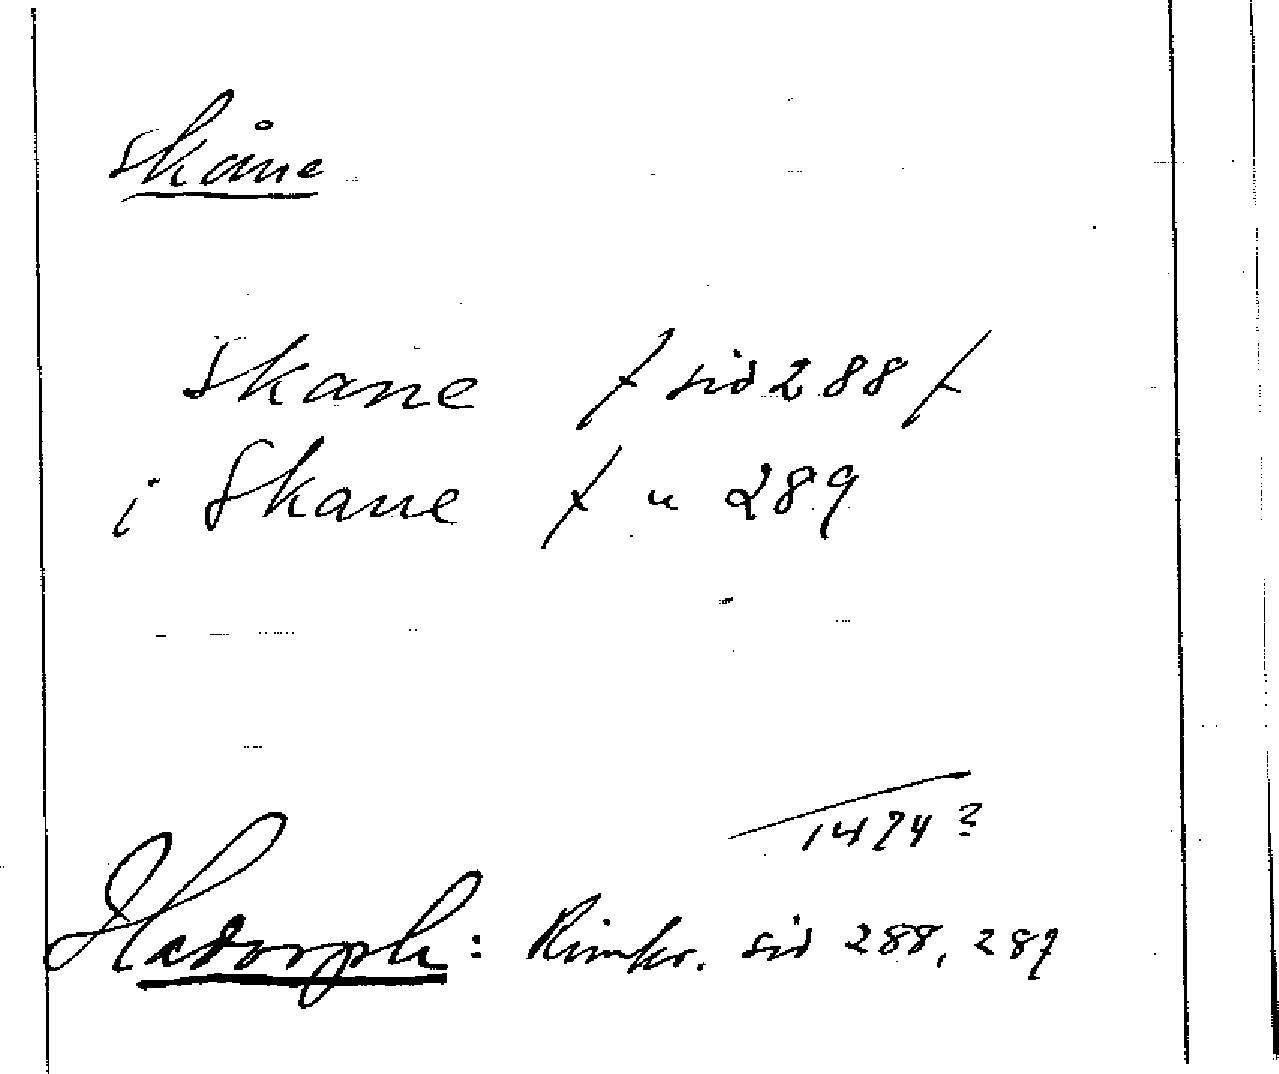 Skåne
Skane / sid 288 /
i Skane / " 289
1474?
Hadorph: Rimkr. sid 288, 289